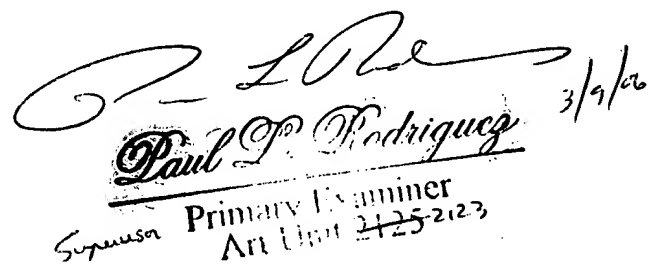 P L Rod 3/9/06
Paul L. Rodriguez
Supervisor Primary Examiner
Art Unit 2125 2123